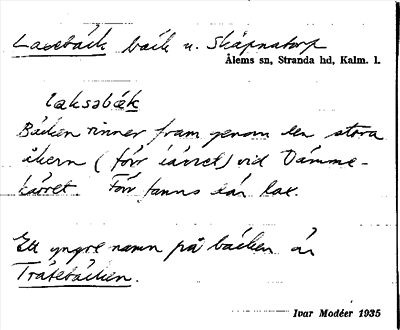 Laxebäck bäck u. Skäpnatorp
Ålems sn, Stranda hd, Kalm. l.
laksəbæk
Bäcken rinner fram genom den stora
åkern (förr kärret) vid Dämme-
kärret. Förr fanns där lax.
Ett yngre namn på bäcken är
Träskebäcken.
Ivar Modéer 1935